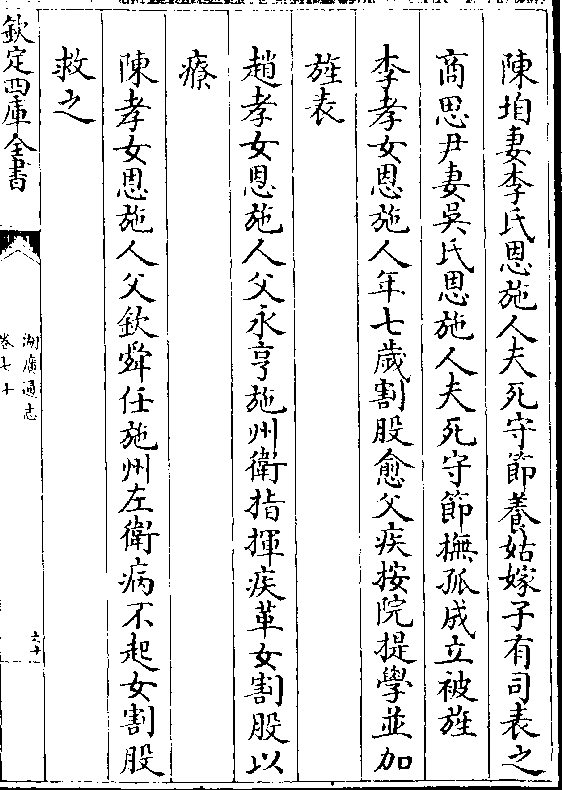 陳垍妻李氏恩施人夫死守節養姑嫁子有司表之
商思尹妻吳氏恩施人夫死守節撫孤成立被旌
李孝女恩施人年七歲割股愈父疾按院提學並加
旌表
趙孝女恩施人父永亨施州衛指揮疾革女割股以
療
陳孝女恩施人父欽舜任施州左衛病不起女割股
救之
欽定四庫全書
湖廣通志
卷七十
六十